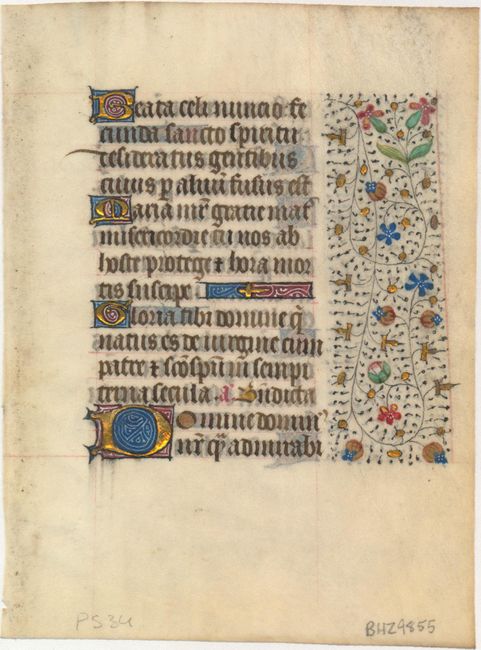 Beata celi nuncio fe
cunda sancto spiritu
desideratus gentibus
cuius p aluū fusus est
Maria mr̄ gratie mat̄
misericordie tu nos ab
hoste protege ⁊ hora mor
tis suscipe
Gloria tibi domine q̄
natus es de uirgine cum
patre ⁊ sc̄o sp̄u in sempi
terna secula a. Bndicta
Domine domin᷒
nr̄ q̄ admirabi
PS34
BHZ9855